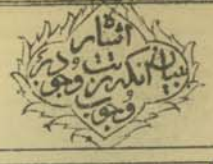 اشاره
بیان آنکه رتبت وجود در
وجوب